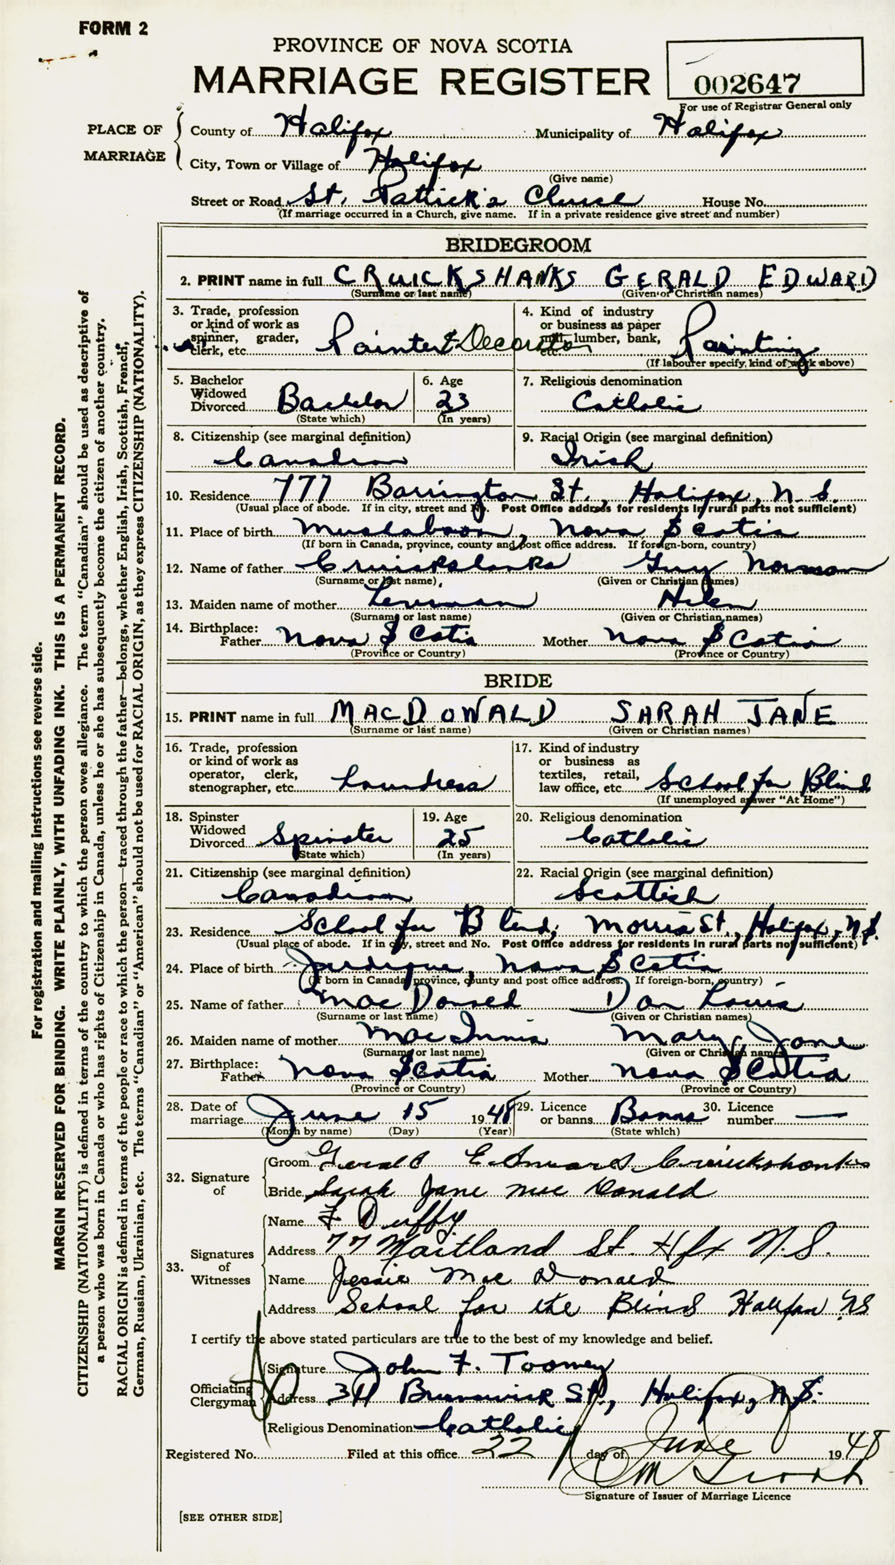 FORM 2
PROVINCE OF NOVA SCOTIA
MARRIAGE REGISTER
002647
For use of Registrar General only
PLACE OF MARRIAGE
County of Halifax Municipality of Halifax
City, Town or Village of Halifax
(Give name)
Street or Road St. Patrick's House No.
(If marriage occurred in a Church, give name. If in a private residence give street and number)
BRIDEGROOM
2. PRINT name in full CRUICKSHANKS GERALD EDWARD
(Surname or last name) (Given or Christian names)
3. Trade, profession or kind of work as spinner, grader, clerk, etc. Painter & Decorator
4. Kind of industry or business as paper mill, lumber, bank, etc. Painting
(If labourer specify kind of work above)
5. Bachelor Widowed Divorced Bachelor
(State which)
6. Age 23
(In years)
7. Religious denomination
Catholic
8. Citizenship (see marginal definition)
Canadian
9. Racial Origin (see marginal definition)
Irish
10. Residence 777 Barrington St., Halifax, N.S.
(Usual place of abode. If in city, street and No. Post Office address for residents in rural parts not sufficient)
11. Place of birth Nova Scotia
(If born in Canada, province, county and post office address. If foreign-born, country)
12. Name of father Cruickshanks Guy Norman
(Surname or last name) (Given or Christian names)
13. Maiden name of mother Helen
(Surname or last name) (Given or Christian names)
14. Birthplace: Father Nova Scotia Mother Nova Scotia
(Province or Country) (Province or Country)
BRIDE
15. PRINT name in full MACDONALD SARAH JANE
(Surname or last name) (Given or Christian names)
16. Trade, profession or kind of work as operator, clerk, stenographer, etc. Laundress
17. Kind of industry or business as textiles, retail, law office, etc. School for Blind
(If unemployed answer "At Home")
18. Spinster Widowed Divorced Spinster
(State which)
19. Age 25
(In years)
20. Religious denomination
Catholic
21. Citizenship (see marginal definition)
Canadian
22. Racial Origin (see marginal definition)
Scottish
23. Residence School for Blind, Morris St., Halifax, N.S.
(Usual place of abode. If in city, street and No. Post Office address for residents in rural parts not sufficient)
24. Place of birth Nova Scotia
(If born in Canada, province, county and post office address. If foreign-born, country)
25. Name of father MacDonald Dan Louis
(Surname or last name) (Given or Christian names)
26. Maiden name of mother MacInnis Mary Jane
(Surname or last name) (Given or Christian names)
27. Birthplace: Father Nova Scotia Mother Nova Scotia
(Province or Country) (Province or Country)
28. Date of marriage June 15 1948
(Month by name) (Day) (Year)
29. Licence or banns Banns
(State which)
30. Licence number —
32. Signature of
Groom Gerald Edward Cruickshanks
Bride Sarah Jane MacDonald
33. Signatures of Witnesses
Name F Duffy
Address 77 Maitland St. Hfx N.S.
Name Jessie MacDonald
Address School for the Blind Halifax NS
I certify the above stated particulars are true to the best of my knowledge and belief.
Officiating Clergyman
Signature John F. Toomey
Address Brunswick St., Halifax, N.S.
Religious Denomination Catholic
Registered No. Filed at this office 22 day of June 1948
Signature of Issuer of Marriage Licence
[SEE OTHER SIDE]
For registration and mailing instructions see reverse side.
MARGIN RESERVED FOR BINDING. WRITE PLAINLY, WITH UNFADING INK. THIS IS A PERMANENT RECORD.
CITIZENSHIP (NATIONALITY) is defined in terms of the country to which the person owes allegiance. The term "Canadian" should be used as descriptive of
a person who was born in Canada or who has rights of Citizenship in Canada, unless he or she has subsequently become the citizen of another country.
RACIAL ORIGIN is defined in terms of the people or race to which the person—traced through the father—belongs, whether English, Irish, Scottish, French,
German, Russian, Ukrainian, etc. The terms "Canadian" or "American" should not be used for RACIAL ORIGIN, as they express CITIZENSHIP (NATIONALITY).